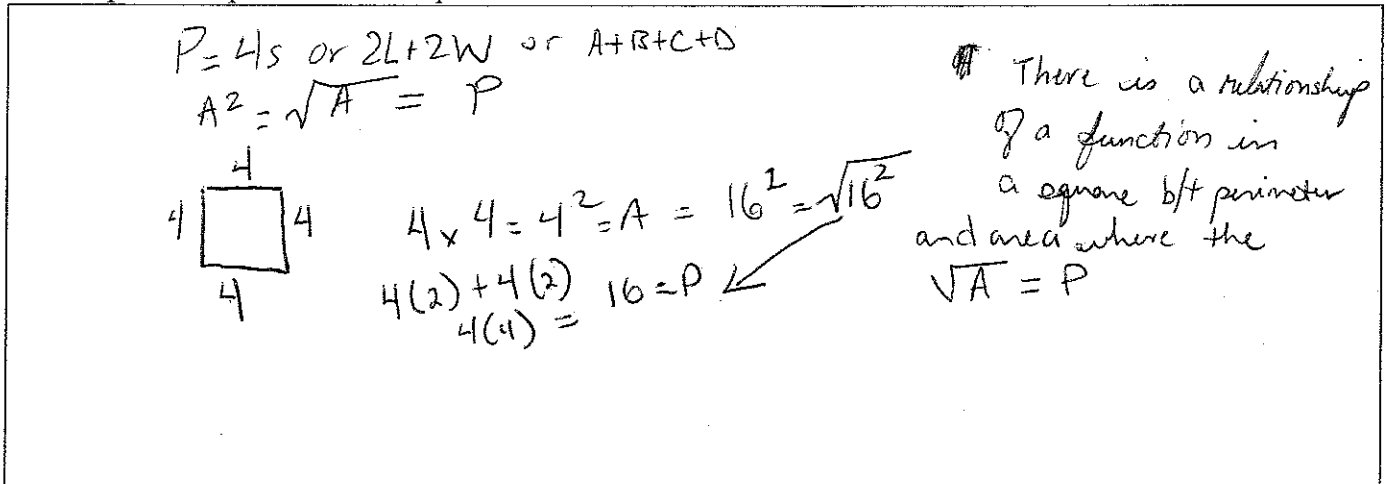 P = 4s or 2L+2W or A+B+C+D
A² = √A = P
4
4 4
4
4 x 4 = 4² = A = 16² = √16²
4(2) + 4(2) 16 = P
4(4) =
There is a relationship
of a function in
a square b/t perimeter
and area where the
√A = P